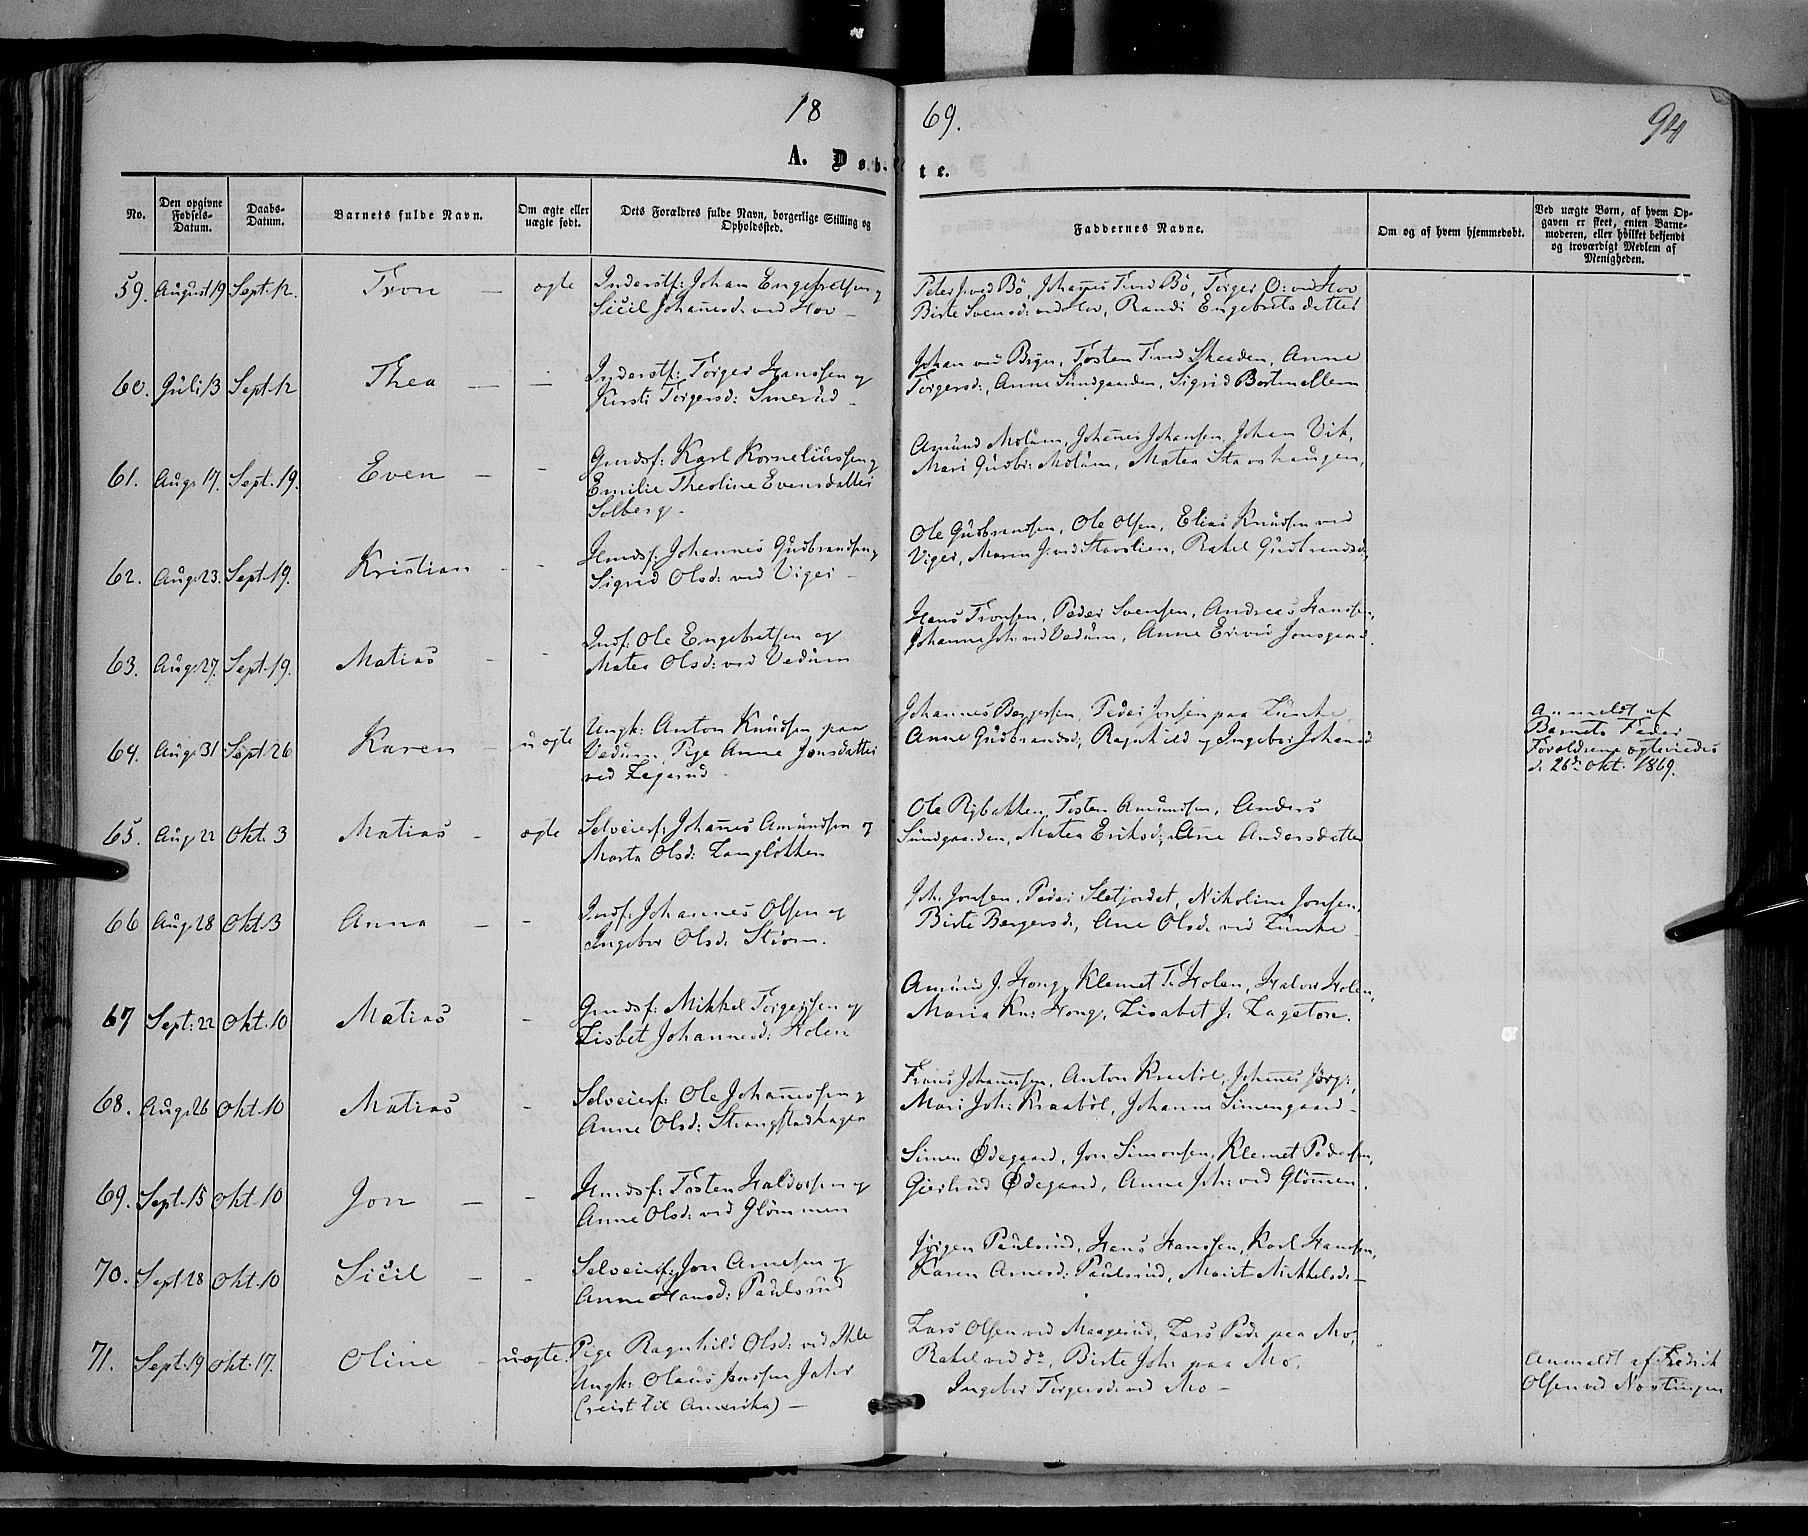 18 69. 94
A. Døbte.
No.
Den opgivne Fødsels-Datum.
Daabs-Datum.
Barnets fulde Navn.
Om ægte eller uægte født.
Dets Forældres fulde Navn, borgerlige Stilling og Opholdssted.
Faddernes Navne.
Om og af hvem hjemmedøbt.
Ved uægte Børn, af hvem Opgaven er skeet, enten Barnemoderen, eller hvilket bekjendt og troværdigt Medlem af Menigheden.
59. August 19 Sept. 12 Tron — ægte
Inderstf: Johan Engebretsen og
Sicil Johanesd: ved Hov —
Peter J: ved Bø, Johanes T: ved Bø, Torger O: ved Hov
Birte Svensd: ved Hov, Randi Engebretsdatter
60. Juli 13 Sept. 12 Thea — —
Inderstf: Torger Hanssen og
Kersti Torgersd: Smerud —
Johan ved Bryn, Tosten T: ved Skeaden, Anne
Torgersd:, Anne Sundgaarden, Sigrid Bortenellem
61. Aug. 17. Sept. 19. Even — -
Gmdsf: Karl Korneliussen og
Emilie Theoline Evensdatter
Solberg.
Amund Molum, Johanes Johansen, Johan Vik,
Mari Gudbr: Molum, Matea Stavshaugen,
62. Aug. 23. Sept. 19. Kristian - -
Hmdsf: Johannes Gudbrandsen og
Sigrid Olsd: ved Viger —
Ole Gudbrandsen, Ole Olsen, Elias Knudsen ved
Viger, Maren J: ved Stavslien, Rakel Gudbrandsd:
63. Aug. 27. Sept. 19. Matias - -
Indf: Ole Engebretsen og
Matea Olsd: ved Vedum
Hans Tronsen, Peder Svensen, Andreas Hanssen,
Johanne Joh: ved Vedum, Anne E: ved Jonsgaard.
64. Aug. 31 Sept 26 Karen - uægte
Ungk: Anton Knudsen paa
Vedum, Pige Anne Jonsdatter
ved Legerud.
Johannes Bergersen, Peder Jonsen paa Lunke,
Anne Gudbrandsd:, Ragnhild og Ingebor Johansd
Anmeldt af
Barnets Fader
Forældrene ægteviedes
d. 26de Okt. 1869.
65. Aug 22 Okt. 3 Matias - ægte
Selveierf: Johanes Amundsen og
Marta Olsd: Langløkken
Ole Rybakken, Tosten Amundsen, Anders
Sundgaarden, Matea Eriksd:, Ane Andersdatter
66 Aug. 28 Okt. 3 Anna — -
Indf: Johannes Olsen og
Ingebor Olsd: Strøm.
Joh: Jonsen, Peder Sletjordet, Nikoline Jonsen,
Birte Bergersd:, Ane Olsd: ved Lunke
67 Sept. 22 Okt. 10 Matias -
Gmdsf: Mikkel Torgersen og
Lisbet Johannesd: Holen
Amund J. Hong, Klemet T. Holen, Halvor Holen,
Maria Kn: Hong, Lisabet J. Lageton.
68. Aug. 26 Okt. 10 Matias -
Selveierf: Ole Johanessen og
Anne Olsd: Strangstadhagen
Frans Johanessen, Anton Kraabøl, Johanes Jørg:,
Mari Joh: Kraabøl, Johanne Simengaard —
69. Sept. 15 Okt. 10 Jon — -
Hmdsf: Tosten Haldorsen og
Anne Olsd: ved Glommen
Simen Ødegaard, Jon Simonsen, Klemet Pedersen,
Gjertrud Ødegaard, Anne Joh: ved Glommen.
70. Sept 28 Okt. 10 Sicil — -
Selveierf: Jon Arnesen og
Anne Hansd: Paulsrud
Jørgen Paulsrud, Hans Hanssen, Karl Hanssen,
Karen Arnesd: Paulsrud, Marit Mikkelsd: —
71. Sept. 19 Okt. 17. Oline — uægte.
Pige Ragnhild Olsd: ved Ihle
Ungk: Olaus Jonssen Jahr
(reist til Amerika) —
Lars Olsen ved Maagerud, Lars Ped: paa Mo,
Rakel ved do, Birte Joh: paa Mo,
Ingebor Torgersd: ved Mo —
Anmeldt af Fredrik
Olsen ved Nortingen